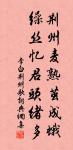 荆州麦熟茧成蛾
缲丝忆君头绪多
李白荆州歌诗典网集